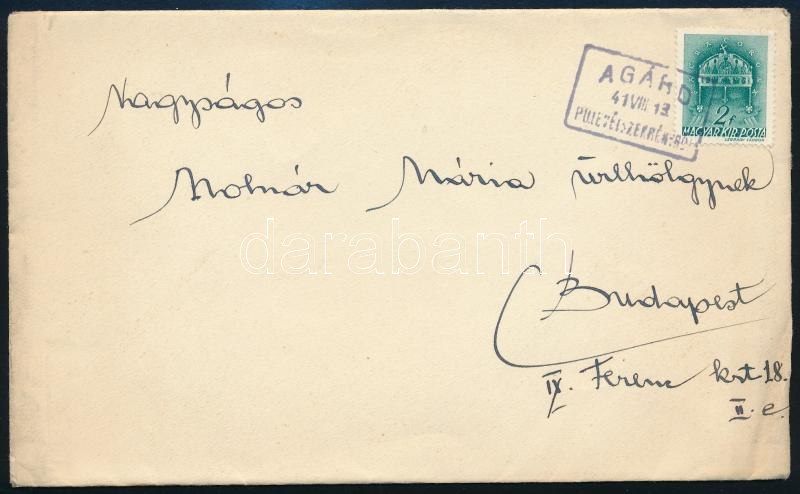 AGÁRD
41 VIII 13
2f
MAGYAR KIR. POSTA
LÉGRÁDY SÁNDOR
Nagyságos
Molnár Mária úrhölgynek
darabanth
Budapest
IX. Ferenc krt 18.
II. e.